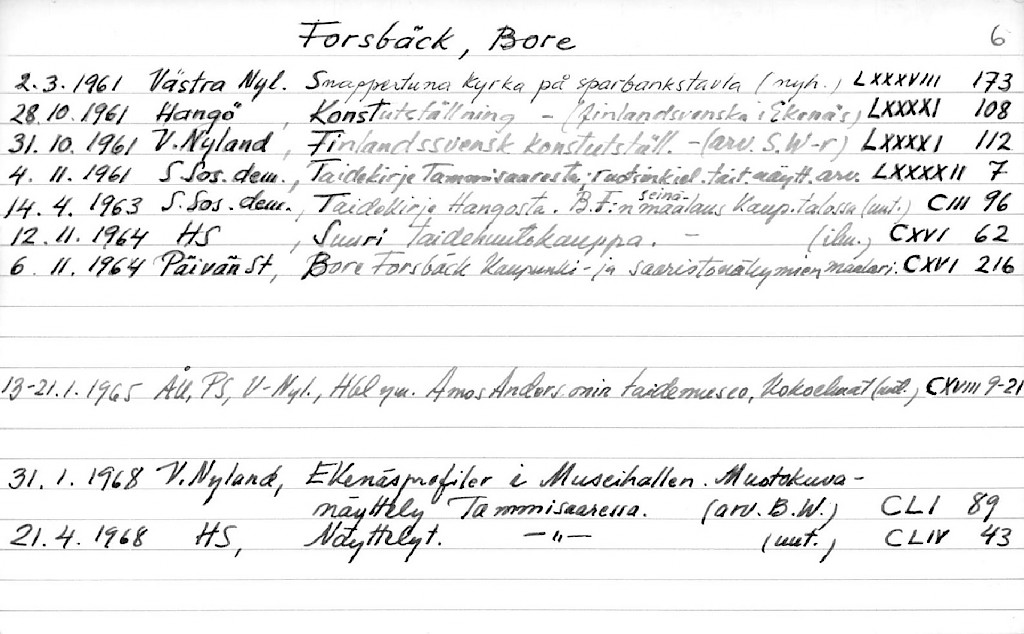 Forsbäck, Bore 6
2.3.1961 Västra Nyl. Snappertuna kyrka på sparbankstavla (nyh.) LXXXVIII 173
28.10.1961 Hangö, Konstutställning - (Finlandsvenska i Ekenäs) LXXXXI 108
31.10.1961 V.Nyland, Finlandssvensk konstutställ. - (arv. S.W-r) LXXXXI 112
4.11.1961 S.Sos.dem., Taidekirje Tammisaaresta, ruotsinkiel. tait. näytt. arv. LXXXXII 7
14.4.1963 S.Sos.dem., Taidekirje Hangosta. B.F:n seinä-maalaus Kaup.talossa (uut.) CIII 96
12.11.1964 HS, Suuri taidehuutokauppa. - (ilm.) CXVI 62
6.11.1964 PäivänSt, Bore Forsbäck Kaupunki- ja saaristonäkymien maalari. CXVI 216
13-21.1.1965 ÅU, PS, V-Nyl., Hbl ym. Amos Andersonin taidemuseo, Kokoelmat (uut.) CXVIII 9-21
31.1.1968 V.Nyland, Ekenäsprofiler i Museihallen. Muotokuva-
näyttely Tammisaaressa. (arv. B.W.) CLI 89
21.4.1968 HS, Näyttelyt. -"- (uut.) CLIV 43